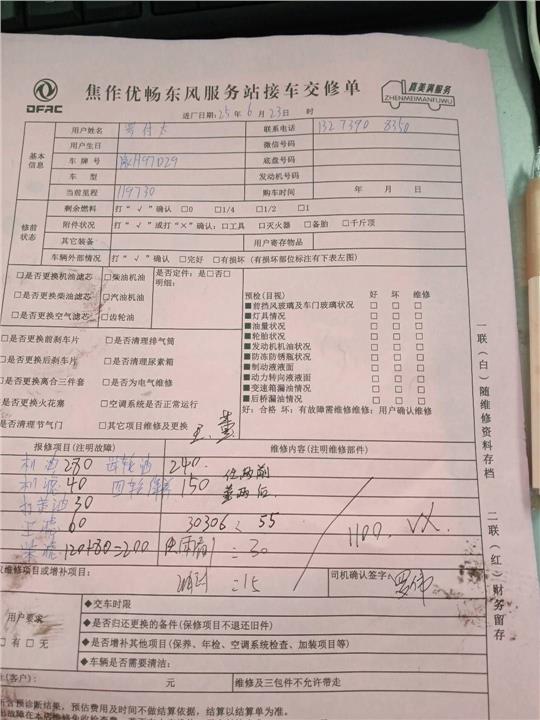 DFAC
焦作优畅东风服务站接车交修单
真美满服务
ZHENMEIMANFUWU
进厂日期: 25 年 6 月 23 日 时
基本信息
用户姓名 联系电话 132 7390 8350
用户生日 微信号码
车牌号 H97D29 底盘号码
车型 发动机号码
当前里程 119730 购车时间 年 月 日
修前状态
剩余燃料 打“√”确认 □0 □1/4 □1/2 □1
附件状况 打“√”或打“×”确认: □工具 □灭火器 □备胎 □千斤顶
其它装备 用户寄存物品
车辆外部情况 打“√”确认 □完好 □有损坏 (有损坏部位标注有下表左图)
□是否更换机油滤芯 □柴油机油 是否定件: 是□否□
明细:
□是否更换柴油滤芯 □汽油机油
□是否更换空气滤芯 □齿轮油
预检(目视) 好 坏 维修
■前挡风玻璃及车门玻璃状况 □ □ □
■灯具情况 □ □ □
■油量状况 □ □ □
■轮胎状况 □ □ □
■发动机机油状况 □ □ □
■防冻防锈瓶状况 □ □ □
■制动液液面 □ □ □
■动力转向液液面 □ □ □
■变速箱漏油情况 □ □ □
■后桥漏油情况 □ □ □
好: 合格 坏: 有故障需维修维修: 用户确认维修
□是否更换前刹车片 □是否清理排气筒
□是否更换后刹车片 □是否清理尿素箱
□是否更换离合三件套 □是否为电气维修
是否更换火花塞 □空调系统是否正常运行
是否清理节气门 □其它项目维修及更换
报修项目(注明故障) 维修内容(注明维修部件)
机油 280 齿轮油 240
机滤 40 四轮保养 150
30
60 30306 55
120+80=200 = 30
=15
1100.
维修项目或增补项目: 司机确认签字:
用户要求
□有 □无
◆交车时限
◆是否归还更换的备件(保修项目不退还旧件)
◆是否增补其他项目(保养、年检、空调系统检查、加装项目等)
◆车辆是否需要清洁:
(客户): 元 维修及三包件不允许带走
含预诊断结果, 预估费用及时间不做结算依据, 结算以结算单为准。
一联(白)随维修资料存档
二联(红)财务留存